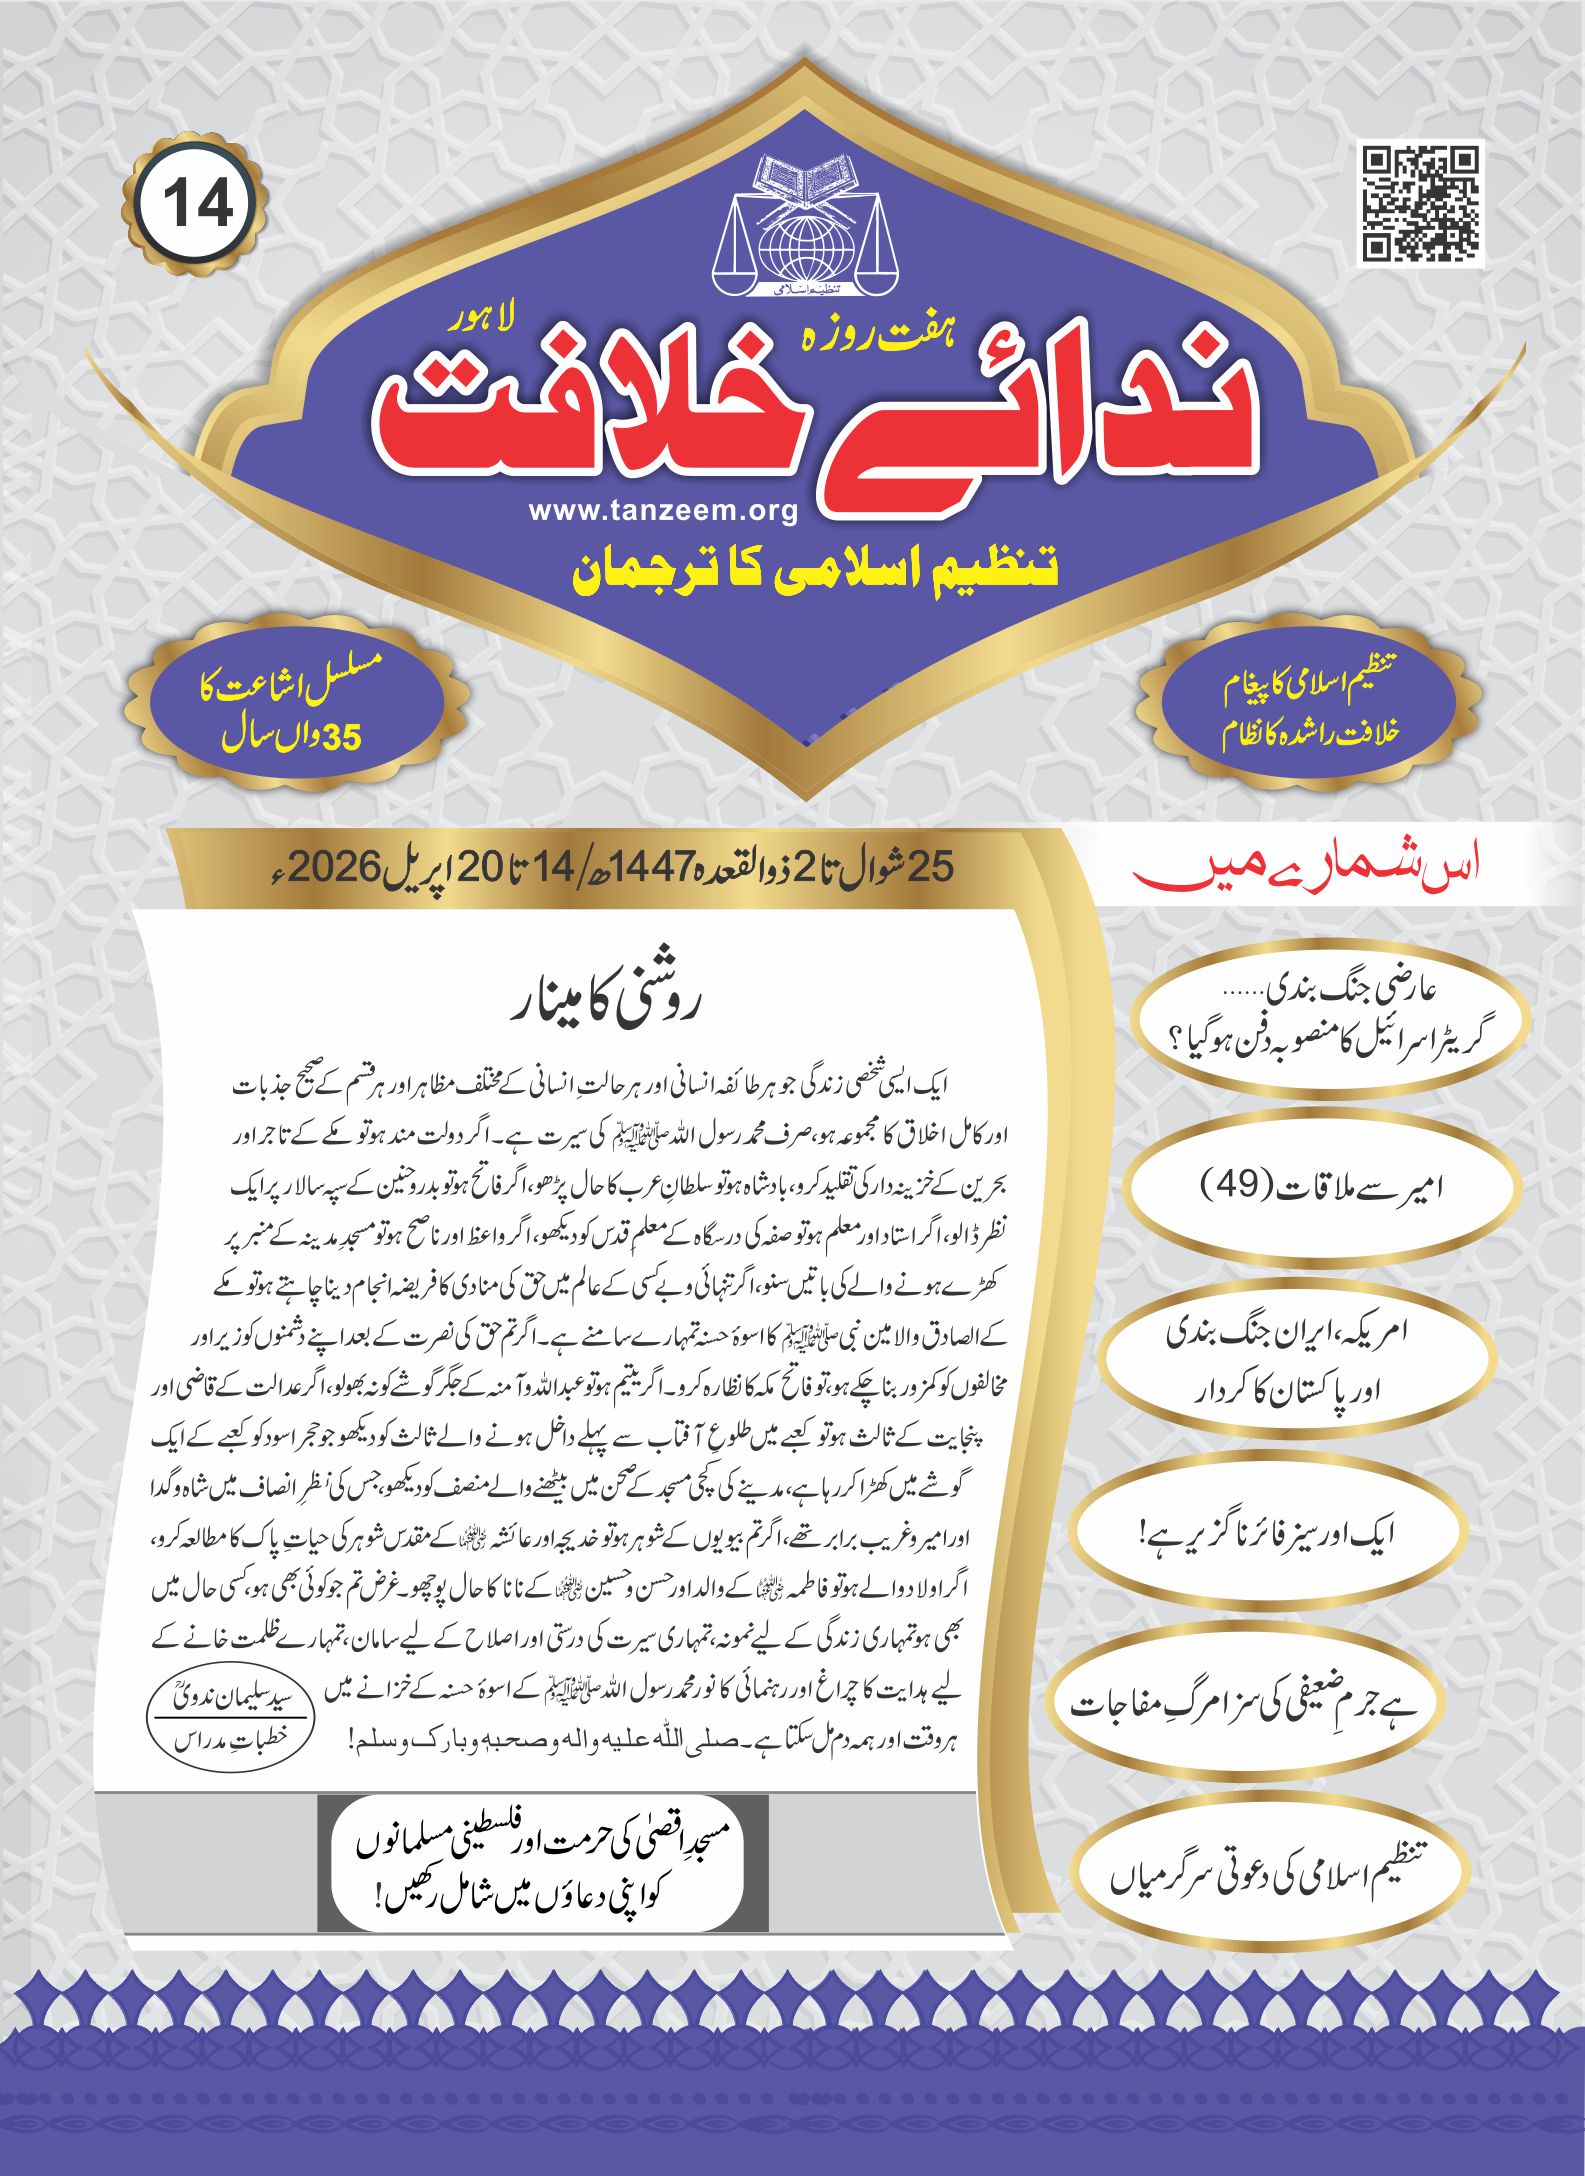 14
تنظیم اسلامی
ہفت روزہ
لاہور
ندائے خلافت
www.tanzeem.org
تنظیم اسلامی کا ترجمان
تنظیم اسلامی کا پیغام
خلافت راشدہ کا نظام
مسلسل اشاعت کا
35واں سال
25 شوال تا 2 ذوالقعدہ 1447ھ/14 تا 20 اپریل 2026ء
روشنی کا مینار
ایک ایسی شخصی زندگی جو ہر طائفہ انسانی اور ہر حالتِ انسانی کے مختلف مظاہر اور ہر قسم کے صحیح جذبات
اور کامل اخلاق کا مجموعہ ہو، صرف محمد رسول اللہ ﷺ کی سیرت ہے۔ اگر دولت مند ہو تو مکے کے تاجر اور
بحرین کے خزینہ دار کی تقلید کرو، بادشاہ ہو تو سلطانِ عرب کا حال پڑھو، اگر فاتح ہو تو بدر و حنین کے سپہ سالار پر ایک
نظر ڈالو، اگر استاد اور معلم ہو تو صفہ کی درسگاہ کے معلمِ قدس کو دیکھو، اگر واعظ اور ناصح ہو تو مسجدِ مدینہ کے منبر پر
کھڑے ہونے والے کی باتیں سنو، اگر تنہائی و بے کسی کے عالم میں حق کی منادی کا فریضہ انجام دینا چاہتے ہو تو مکے
کے الصادق والامین نبی ﷺ کا اسوۂ حسنہ تمہارے سامنے ہے۔ اگر تم حق کی نصرت کے بعد اپنے دشمنوں کو زیر اور
مخالفوں کو کمزور بنا چکے ہو، تو فاتح مکہ کا نظارہ کرو۔ اگر یتیم ہو تو عبداللہ و آمنہ کے جگر گوشے کو نہ بھولو، اگر عدالت کے قاضی اور
پنچایت کے ثالث ہو تو کعبے میں طلوعِ آفتاب سے پہلے داخل ہونے والے ثالث کو دیکھو جو حجر اسود کو کعبے کے ایک
گوشے میں کھڑا کر رہا ہے، مدینے کی کچی مسجد کے صحن میں بیٹھنے والے منصف کو دیکھو، جس کی نظرِ انصاف میں شاہ و گدا
اور امیر و غریب برابر تھے، اگر تم بیویوں کے شوہر ہو تو خدیجہ اور عائشہ رضی اللہ عنہما کے مقدس شوہر کی حیاتِ پاک کا مطالعہ کرو،
اگر اولاد والے ہو تو فاطمہ رضی اللہ عنہا کے والد اور حسن و حسین رضی اللہ عنہما کے نانا کا حال پوچھو۔ غرض تم جو کوئی بھی ہو، کسی حال میں
بھی ہو تمہاری زندگی کے لیے نمونہ، تمہاری سیرت کی درستی اور اصلاح کے لیے سامان، تمہارے ظلمت خانے کے
لیے ہدایت کا چراغ اور رہنمائی کا نور محمد رسول اللہ ﷺ کے اسوۂ حسنہ کے خزانے میں
ہر وقت اور ہمہ دم مل سکتا ہے۔ صلی اللہ علیہ والہ وصحبہٖ وبارک وسلم!
سید سلیمان ندویؒ
خطباتِ مدراس
مسجدِ اقصیٰ کی حرمت اور فلسطینی مسلمانوں
کو اپنی دعاؤں میں شامل رکھیں!
اس شمارے میں
عارضی جنگ بندی......
گریٹر اسرائیل کا منصوبہ دفن ہو گیا؟
امیر سے ملاقات (49)
امریکہ، ایران جنگ بندی
اور پاکستان کا کردار
ایک اور سیز فائر ناگزیر ہے!
ہے جرمِ ضعیفی کی سزا مرگِ مفاجات
تنظیم اسلامی کی دعوتی سرگرمیاں